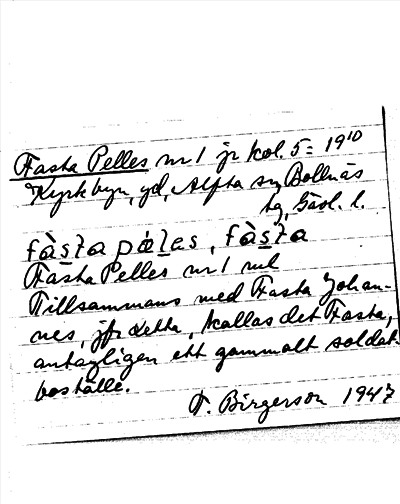 Fasta Pelles nr 1 jr kol. 5 = 19¹⁰
Kyrkbyn, gd, Alfta sn, Bollnäs
tg, Gävl. l.
fàsta pèles, fàsta
Fasta Pelles nr 1 mtl
Tillsammans med Fasta Johan-
nes, jfr detta, kallas det Fasta,
antagligen ett gammalt soldat-
boställe.
T. Birgerson 1947